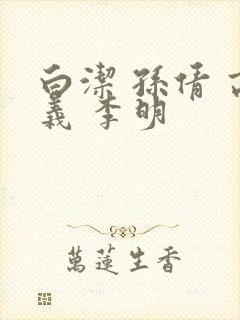 白潔 孫倩 高
義 李明
萬蓮生香